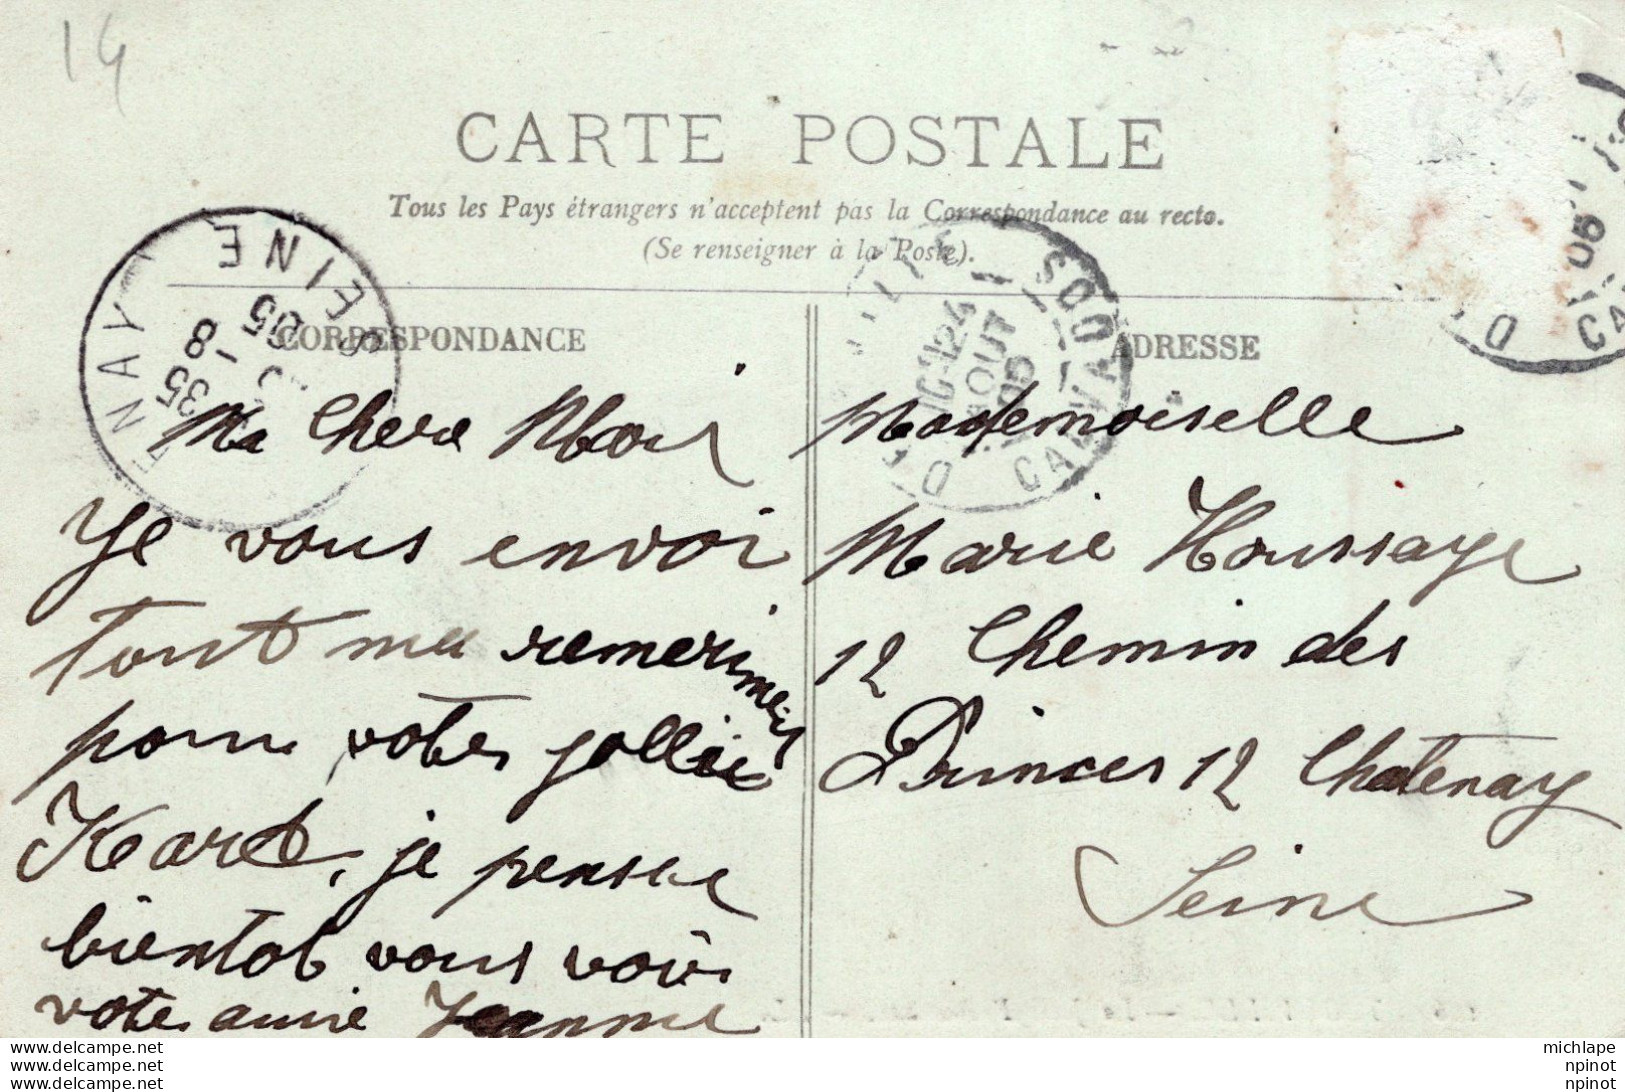 14
CARTE POSTALE
Tous les Pays étrangers n'acceptent pas la Correspondance au recto.
(Se renseigner à la Poste).
CORRESPONDANCE
Ma Chere Mari
Je vous envoi
tout me remerimen
pour votre jollie
Kart, je pense
bientot vous voir
votre amie Jeanne
ADRESSE
Mademoiselle
Marie Houssaye
12 Chemin des
Princes 12 Chatenay
Seine
NAY SEINE
8 35
8
05
D
CALVADOS
24
AOUT
05
D
CA
05
www.delcampe.net
www.delcampe.net
www.delcampe.net
michlape
npinot
npinot